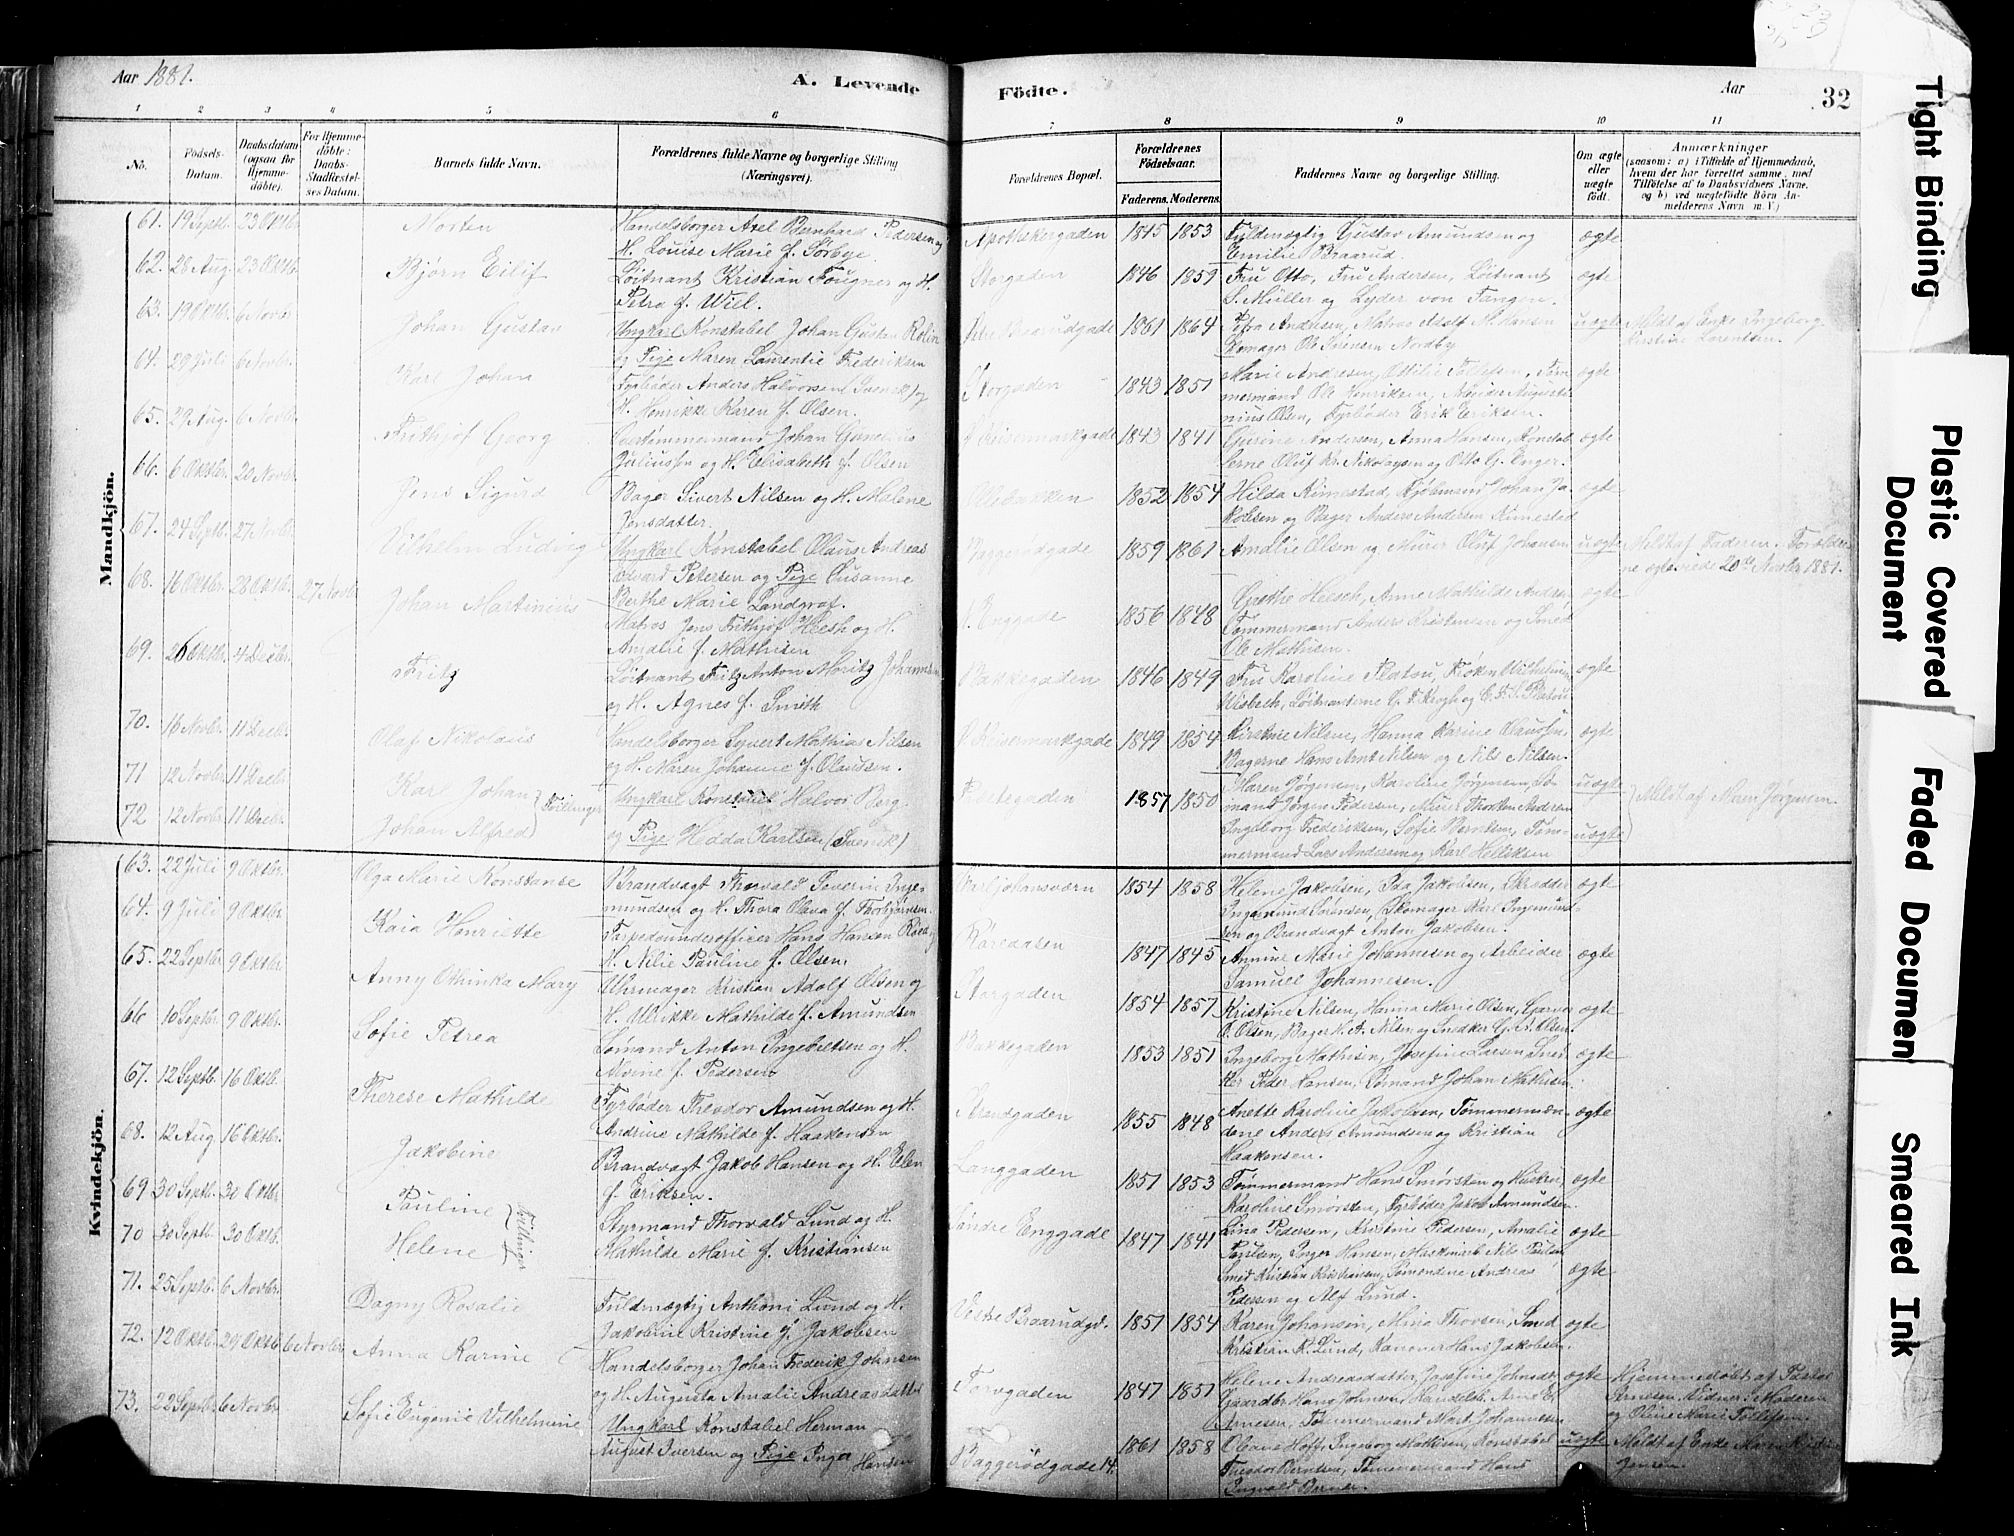 Aar 1881.
A. Levende
Födte.
Aar
32
1 2 3 4 5 6 7 8 9 10 11
No.
Födsels-
Datum.
Daabsdatum
(ogsaa for
Hjemme-
döbte).
For Hjemme-
döbte:
Daabs-
Stadfæstel-
ses Datum.
Barnets fulde Navn.
Forældrenes fulde Navne og borgerlige Stilling
(Næringsvei).
Forældrenes Bopæl.
Forældrenes
Födselsaar.
Faderens. Moderens.
Faddernes Navne og borgerlige Stilling.
Om ægte
eller
uægte
født.
Anmærkninger
(saasom: a) i Tilfælde af Hjemmedaab,
hvem der har forrettet samme, med
Tilföielse af to Daabsvidners Navne,
og b) ved uægtefödte Börn An-
melderens Navn m. V.)
Mandkjön.
61. 19 Septb. 23 Oktb. Morten
Handelsborger Axel Bernhard Pedersen og
H. Louise Marie f. Sørbye.
Apothekergaden 1845 1853
Fuldmægtig Gustav Amundsen og
Emilie Braarud. ægte
62. 28 Aug. 23 Oktb. Bjørn Eilif
Löitnant Kristian Fougner og H.
Petra f. Wiel.
Storgaden 1846 1859
Fru Otto, Fru Andersen, Löitnant
S. Müller og Lyder von Tangen. ægte
63. 19 Oktb. 6 Novbr. Johan Gustav
Ungkarl Konstabel Johan Gustav Rolin
og Pige Maren Laurentie Frederiksen
1861 1864
Petra Andresen, Matros Adolf M. Hansen
Skomager Ole Sörensen Nordby uægte
Meldt af Enke Ingeborg
Kirstine Lorentsen.
64. 28 Juli 6 Novbr. Karl Johan
Fyrböder Anders Halvorsen (Svensk) og
H. Henrikke Karen f. Olsen.
Storgaden 1843 1851
Marie Andresen, Ottilie Tollefsen, Töm-
mermand Ole Henriksen, Augusti-
nius Olsen, Fyrböder Erik Eriksen. ægte
65. 29 Aug. 6 Novbr. Frithjof Georg
Overtömmermand Johan
Juliussen og H. Elisabeth f. Olsen
1843 1841
Gurine Andersen, Anna Hansen, Konstab-
lerne Oluf Kr. Nikolaysen og Otto G. Enger. ægte
66. 6 Oktbr. 20 Novbr. Jens Sigurd
Bager Sivert Nilsen og H. Malene
Jensdatter.
1852 1854
Hilda Rimestad, Kjöbmand Johan Ja-
kobsen og Bager Anders Andersen Rimestad ægte
67. 24 Septb. 27 Novbr. Vilhelm Ludvig
Ungkarl Konstabel Olaus Andreas
Edvard Petersen og Pige Susanne
Berthe Marie Landgraf.
Baggerödgade 1859 1861
Amalie Olsen og Murer Oluf Johansen uægte
Meldt af Faderen. Forældre-
ne ægteviede 20de Novbr. 1881.
68. 16 Oktbr. 28 Oktbr. 27 Novbr. Johan Martinius
Matros Jens Frithjof Heesh og H.
Amalie f. Mathisen
Enggade 1856 1848
Grethe Heesch, Anne Mathilde Andersen,
Tömmermand Anders Kristensen og Smed
Ole Mathisen. ægte
69. 26 Oktbr. 4 Decbr. Fritz
Löitnant Fritz Anton Moritz Johannesen
og H. Agnes f. Smith
Bakkegaden 1846 1849
Fru Karoline Platou, Frøkn Vilhelmine
Wisbech, Löitnanterne G. F. Krogh og C. F. S. Platou ægte
70. 16 Novbr. 11 Decbr. Olaf Nikolais
Handelsborger Syvert Mathias Nilsen
og H. Maren Johanne f. Olaussen.
1849 1854
Kirstine Nilsen, Hanna Karine Olaussen,
Bagerne Hans Arnt Nilsen og Nils Nilsen. ægte
71 12 Novbr. 11 Decbr. Karl Johan
72 12 Novbr. 11 Decbr. Johan Alfred Tvillinger
Ungkarl Konstabel Halvor Berg
og Pige Hedda Karlsen (Svensk)
1857 1850
Maren Jörgensen, Karoline Jörgensen, Sö-
mand Jörgen Pedersen, Murer Thorsten Andersen uægte
Ingeborg Frederiksen, Sofie Berntsen, Töm-
mermand Lars Andersen og Karl Helliksen uægte
Meldt af Maren Jörgensen.
Kvindekjön.
63. 22 Juli 9 Oktbr. Olga Marie Konstanse
Brandvagt Thorvald Severin Inge-
mundsen og H. Thora Olava f. Thorbjørnsen.
Karljohansværn 1854 1858
Helene Jakobsen, Ida Jakobsen, Skrædder
Ingemund Sörensen, Skomager Karl Ingemund-
sen og Brandvagt Anton Jakobsen. ægte
64. 9 Juli 9 Oktbr. Kaia Henriette
Torpedounderofficer Hans Hansen Röed og
H. Nilie Pauline f. Olsen.
Röredaasen 1847 1845
Annine Marie Johannesen og Arbeider
Samuel Johannesen. ægte
65. 22 Septbr. 9 Oktbr. Anny Othinka Mary
Uhrmager Kristian Adolf Olsen og
H. Ulrikke Mathilde f. Amundsen
Storgaden 1854 1857
Kristine Nilsen, Hanna Marie Olsen, Garver
O. Olsen, Bager H. A. Nilsen og Snedker G. A. Olsen. ægte
66 10 Septbr. 9 Oktbr. Sofie Petrea
Sömand Anton Ingebretsen og H.
Alvine f. Pedersen
Bakkegaden 1853 1851
Ingeborg Mathisen, Josefine Larsen, Sned-
ker Peder Hansen, Sömand Johan Mathisen. ægte
67. 12 Septb. 16 Oktb. Therese Mathilde
Fyrböder Theodor Amundsen og H.
Andrine Mathilde f. Haakensen
Strandgaden 1855 1848
Anette Karoline Jakobsen, Tömmermæn-
dene Anders Amundsen og Kristian
Haakensen. ægte
68. 12 Aug. 16 Oktbr. Jakobine
Brandvagt Jakob Hansen og H. Elen
f. Eriksen.
Langgaden 1851 1853
Tömmermand Hans Smörsten og Hustru
Karoline Smörsten, Fyrböder Jakob Amundsen. ægte
69 30 Septb. 30 Oktbr. Pauline
70 30 Septb. 30 Oktbr. Helene Tvillinger
Styrmand Thorvald Lund og H.
Mathilde Marie f. Kristiansen
Söndre Enggade 1847 1841
Lina Pedersen, Kristine Pedersen, Amalie
Paulsen, Inger Hansen, Maskinist Nils Paulsen, ægte
Smed Kristian Kristiansen, Sömændene Andreas
Pedersen og Alf Lund. ægte
71. 25 Septbr. 6 Novbr. Dagny Rosalie
Fuldmægtig Anthoni Lund og H.
Jakobine Kristine f. Jakobsen
Vestre Braarudgd. 1851 1854
Karen Johansen, Mina Thorsen, Smed
Kristian K. Lund, Kanoner Hans Jakobsen. ægte
72. 12 Oktbr. 29 Oktb. 6 Novbr. Anna Karine
Handelsborger Johan Frederik Johnsen
og H. Augusta Amalie Andreasdatter
Torvgaden 1847 1851
Helene Andreasdatter, Josefine Johnsen,
Gaardbr. Hans Johnsen, Handelsb. Arne E.
Arnesen, Tömmermand Mart. Johannesen ægte
Hjemmedöbt af Pastor
Arnesen. Vidner: Moderen
og Oline Marie Tollefsen.
73. 22 Septbr. 6 Novbr. Sofie Eugenie Vilhelmine
Ungkarl Konstabel Herman
August Iversen og Pige Inga Hansen
Baggerödgade 14. 1861 1858
Olava Hoff, Ingeborg Mathisen, Konstabel
Theodor Berntsen, Tömmermand Hans
Ingvald Berner. uægte
Meldt af Enke Maren Kirstine
Jensen.
Tight Binding
Plastic Covered
Document
Faded Documen
Smeared Ink